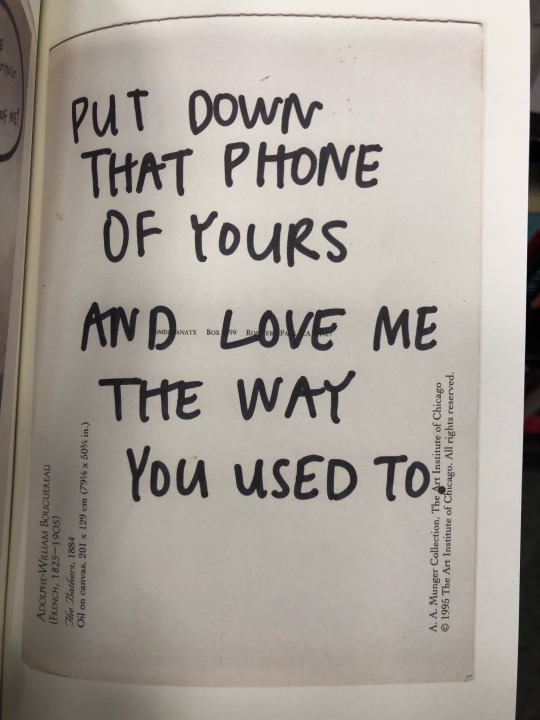 PUT DOWN
THAT PHONE
OF YOURS
AND LOVE ME
THE WAY
YOU USED TO.
ADOLPHE-WILLIAM BOUGUEREAU
(FRENCH, 1825–1905)
The Bathers, 1884
Oil on canvas, 201 x 129 cm (79⅛ x 50¾ in.)
A. A. Munger Collection, The Art Institute of Chicago
© 1995 The Art Institute of Chicago. All rights reserved.
OF ME?